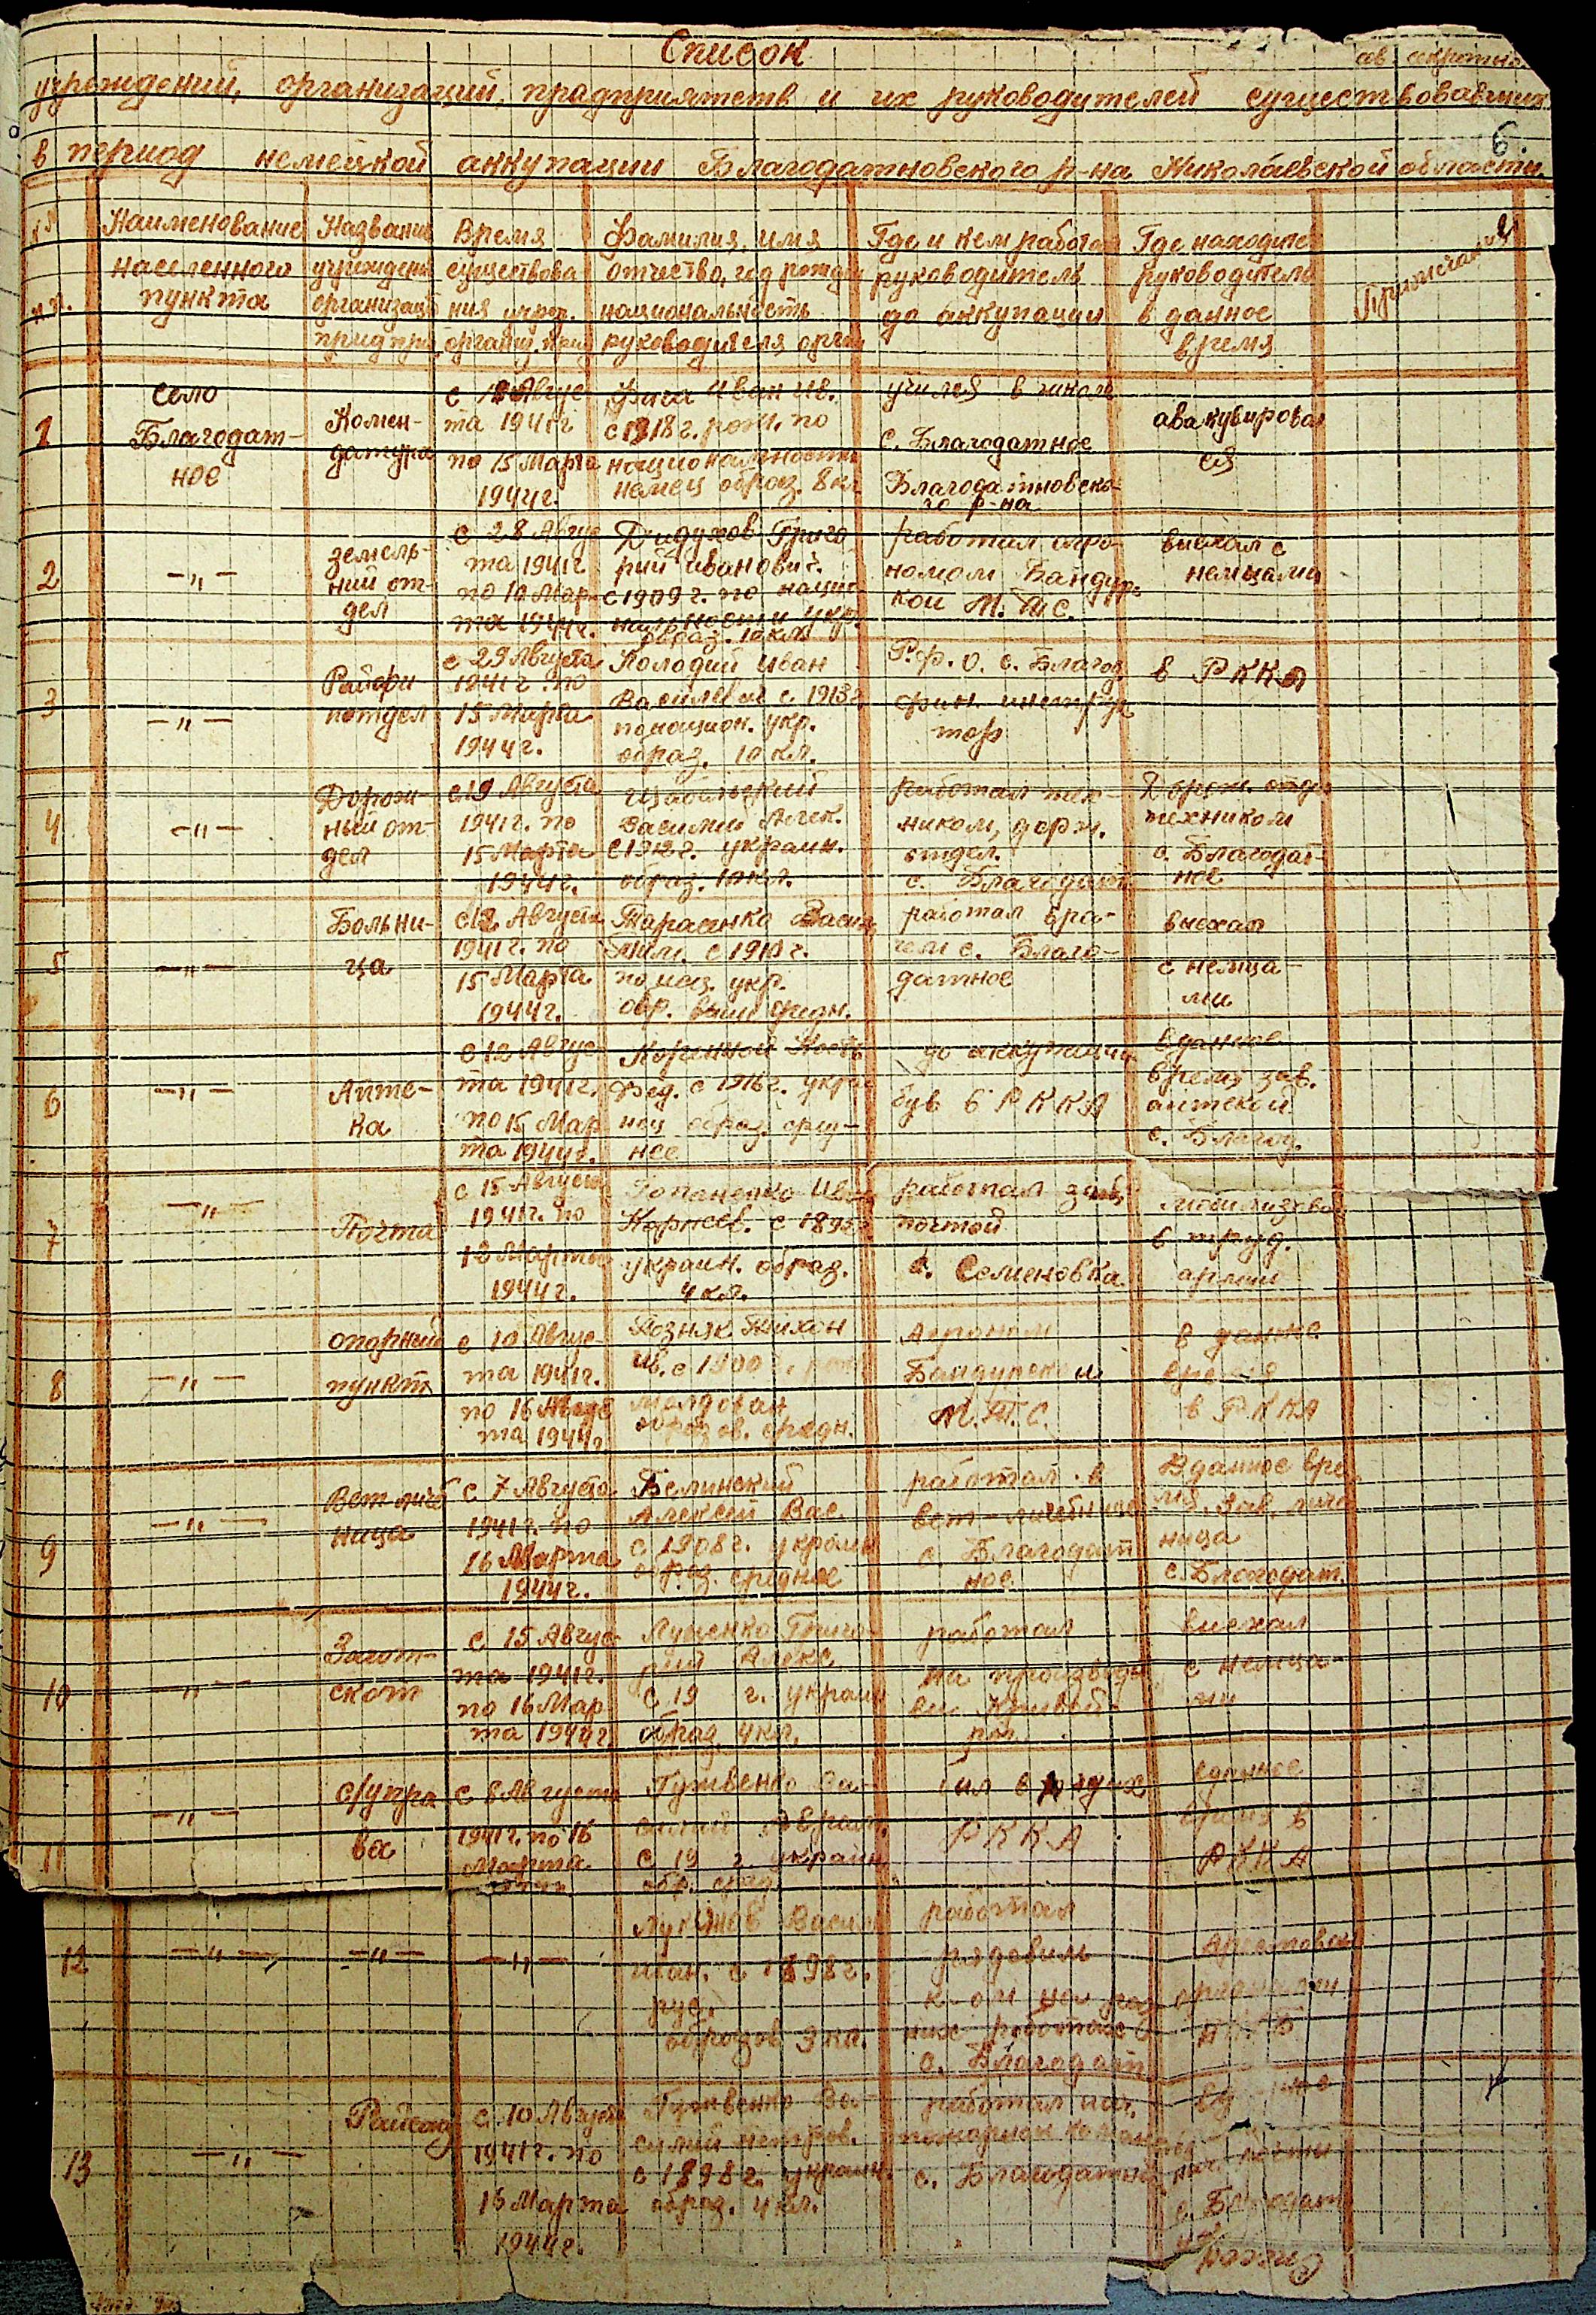 Список
сов. секретно
учреждений, организаций, прадприятеств и их руководителей существовавших
6.
в период немецкой аккупации Благодатновского р-на Николаевской области.
Наименование населенного пункта
Название учрежден организаци придпри
Время существова ния учреж. организ. прид
Фамилия, имя отчество, год рожден национальность руководителя орган
Где и кем работал руководитель до аккупации
Где находится руководитель в данное время
Примечание
1
село Благодат- ное
Комен- датура
с Авгус та 1941г по 15 Марта 1944г.
Иван Ив. с 1918 г. рож. по национальности немец образ. 8 кл
учился в школе с. Благодатное Благодатновско- го р-на
авакуирова ся
2
-"-
земель- ний от- дел
с 28 Авгус та 1941г. по 10 Мар та 1944г.
Дидухов Григо рий Иванович. с 1909 г. по нацио нальности укр. образ. 10 кл
работал агро- номом Бандур. кой М.Т.С.
виехал с немцами
3
-"-
Райфи нотдел
с 29 Августа 1941г. по 15 Марта 1944г.
Колодий Иван Василевич с 1913г понацион. укр. образ. 10 кл.
Р.ф.о. с. Благод. фин. инструк тор
в РККА
4
-"-
Дорож- ный от- дел
с 19 Августа 1941г. по 15 Марта 1944г.
Василий Алек. с 1912г. украин. образ. 10 кл.
работал тех- ником, дорж. отдел. с. Благодатн
Дорож. отде техником с. Благодат- ное
5
-"-
Больни- ца
с 12 Августа 1941г. по 15 Марта 1944г.
Тарасенко Васил с 1910 г. по нац. укр. обр. выше средн.
работал вра- чем с. Благо- датное
виехал с немца- ми
6
-"-
Апте- ка
с 12 Авгус- та 1941г. по 15 Мар та 1944г.
Коренной Кость Фед. с 1916г. укра нец образ. сред- нее
до аккупации був в РККА
вданное время зав. аптекой с. Благод.
7
-"-
Почта
с 15 Августа 1941г. по 13 Марта 1944г.
Гопаненко Ив Корнеев. с 189 украин. образ. 4 кл.
работал зав почтой с. Семеновка.
мобилизован в труд. армии
8
-"-
опорний пункт
с 10 Авгус- та 1941г. по 16 Авгус та 1944г
Позняк Тихон Ив. с 1900 г. рож молдован образов. средн.
Агроном Бандурской М.Т.С.
в данное время в РККА
9
-"-
Вет личеб ница
с 7 Августа 1941г. по 16 Марта 1944г.
Белинский Алексей Вас. с 1908г. украин образ. среднее
работал в вет-личебнице с. Благодат ное.
Вданное вре мя Зав. личе ница с. Благодат.
10
-"-
Загот- скот
с 15 Авгус- та 1941г. по 16 Мар та 1944г
Луценко Григо- рий Алекс с 19 г. украин образ. 4 кл.
работал на производс ве Кривой- рог.
виехал с немца- ми
11
-"-
с/упра ва
с 6 Августа 1941г. по 16 Марта
Гужвенко Ва- силий Аврам. с 19 г. украин обр. сред.
бил в рядах РККА
вданное время в РККА
12
-"-
-"-
-"-
Васил с 1898г. рус. образов 3 кл.
работал рядовим к-ом на раз них роботах с. Благодатн
Арестован органами НКГБ
13
-"-
с 10 Августа 1941г. по 16 Марта 1944г.
Гужвенко Ва- силий Петров. с 1898 г. украин. образ. 4 кл.
работал нач. пожарнок команд с. Благодатное
нач. почти с. Благодат ное